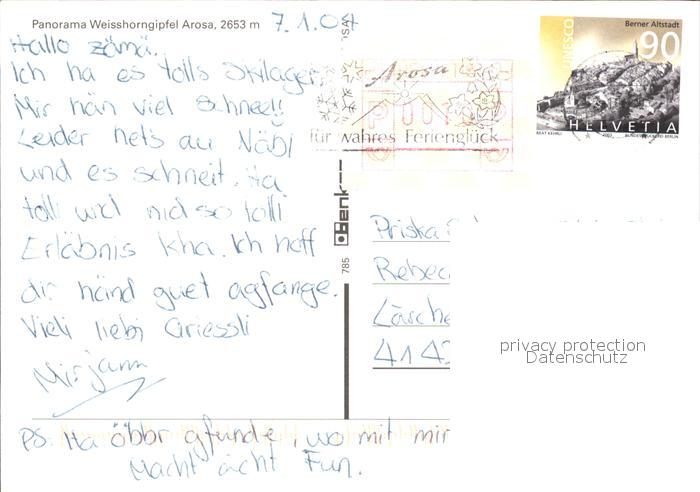 Panorama Weisshorngipfel Arosa, 2653 m
7.1.04
Hallo zämä.
Ich ha es tolls Skilager.
Mir hän viel Schnee!!
Leider hets au Näbl
und es schneit. Ha
tolli und nid so tolli
Erläbnis kha. Ich hoff
dir händ guet agfange.
Vieli liebi Griessli
Mirjam
PS: Ha öbbr gfunde, wo mit mir
Macht acht Fun.
Arosa
für wahres Ferienglück
UNESCO
Berner Altstadt
90
HELVETIA
BEAT KEHRLI
2003
785
Benk
Priska
Rebec
Lärche
4142
privacy protection
Datenschutz